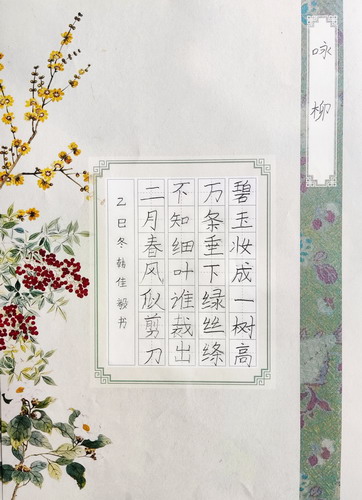 咏柳
碧玉妆成一树高
万条垂下绿丝绦
不知细叶谁裁出
二月春风似剪刀
乙巳冬韩佳毅书